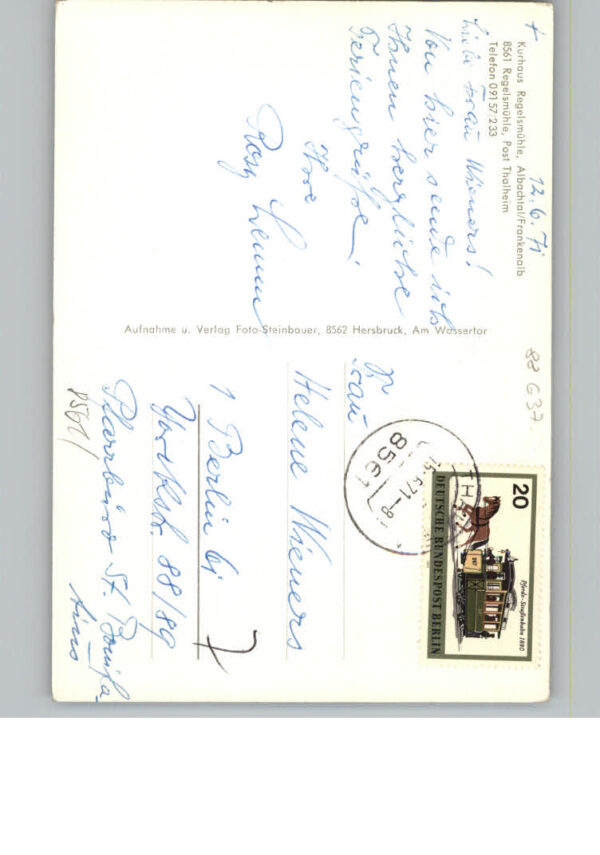 Kurhaus Regelsmühle, Albachtal/Frankenalb
8561 Regelsmühle, Post Thalheim
Telefon 09157/233
+ 12.6.71
Liebe Frau Wieners!
Von hier sende ich
Ihnen herzliche
Feriengrüße!
Ihre
Rosy
Aufnahme u. Verlag Foto-Steinbauer, 8562 Hersbruck, Am Wassertor
Frau
Helene Wieners
1 Berlin 61
7
Yorkstr. 88/89
Pfarrbüro St. Bonifa-
tius
8561/
88 G 37
8561
20
DEUTSCHE BUNDESPOST BERLIN
Pferde-Straßenbahn 1880